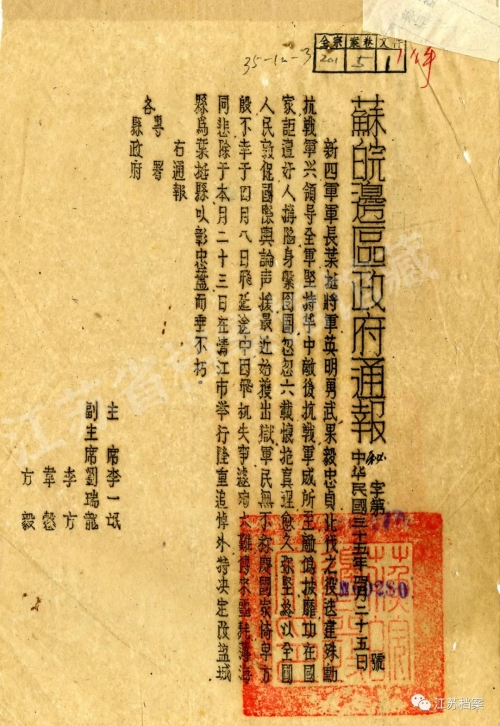 全宗 案卷 文件
201 5 1
35-12-3
蘇皖邊區政府通報
秘字第 號
中华民國三十五年四月二十五日
00280
新四軍軍長葉挺將軍英明勇武果毅忠貞北伐之役迭建殊勳
抗戰軍兴領导全軍堅持华中敵後抗戰軍威所至敵偽披靡功在國
家詎遭奸人搆陷身縶囹圄忽忽六載懷抱真理愈久弥堅終以全國
人民敦促國際輿論声援最近始獲出獄軍民無不称慶國家倚畀方
殷不幸于四月八日飛延途中因飛机失事遽大難傳來噩耗薄海
同悲除于本月二十三日在清江市举行隆重追悼外特决定改盐城
縣爲葉挺縣以彰忠藎而垂不朽。
右通報
各專署
縣政府
主席李一氓
副主席劉瑞龍
李方
韋愨
方毅
江苏省
藏
江苏档案